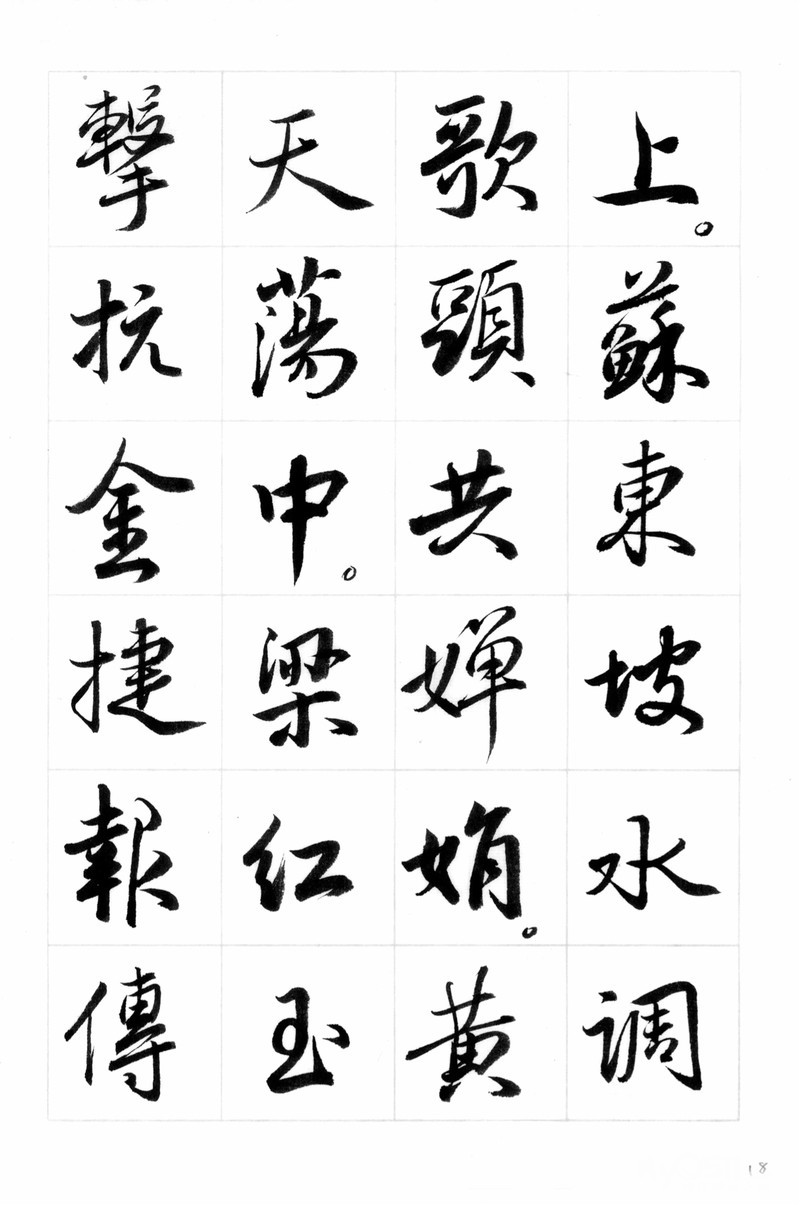 上。蘇東坡水调
歌頭共嬋娟。黄
天蕩中。梁红玉
擊抗金捷報傳
18